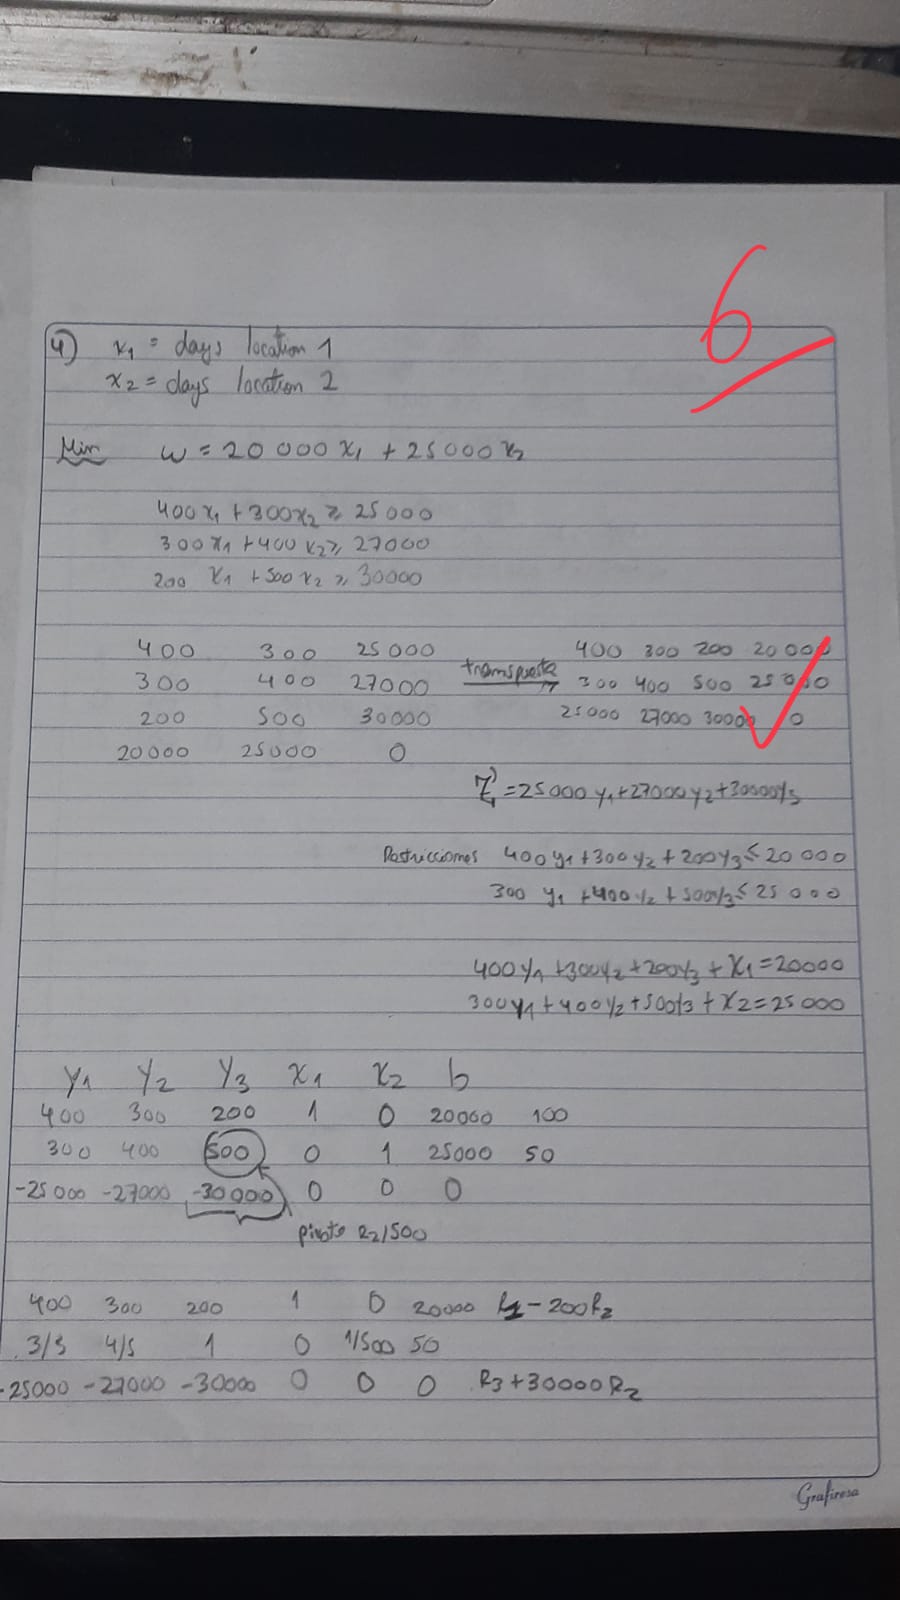 6
4) x₁ = days location 1
x₂ = days location 2
Min w = 20 000 x₁ + 25000 x₂
400x₁ + 300x₂ ≥ 25000
300x₁ + 400x₂ ≥ 27000
200 x₁ + 500x₂ ≥ 30000
400 300 25000
300 400 27000
200 500 30000
20000 25000 0
transpuesta
400 300 200 20000
300 400 500 25000
25000 27000 30000 0
Z = 25000y₁ + 27000y₂ + 30000y₃
Restricciones 400y₁ + 300y₂ + 200y₃ ≤ 20 000
300 y₁ + 400y₂ + 500y₃ ≤ 25 000
400y₁ + 300y₂ + 200y₃ + x₁ = 20000
300y₁ + 400y₂ + 500y₃ + x₂ = 25 000
y₁ y₂ y₃ x₁ x₂ b
400 300 200 1 0 20000 100
300 400 500 0 1 25000 50
-25000 -27000 -30000 0 0 0
pivote R₂/500
400 300 200 1 0 20000 R₁ - 200R₂
3/5 4/5 1 0 1/500 50
-25000 -27000 -30000 0 0 0 R₃ + 30000R₂
Grafirosa